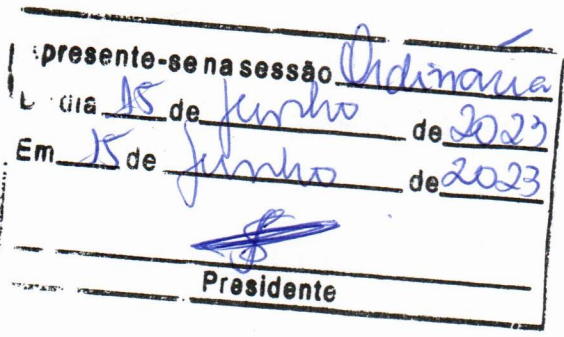 presente-se na sessão Ordinária
dia 15 de junho de 2023
Em 15 de junho de 2023
Presidente